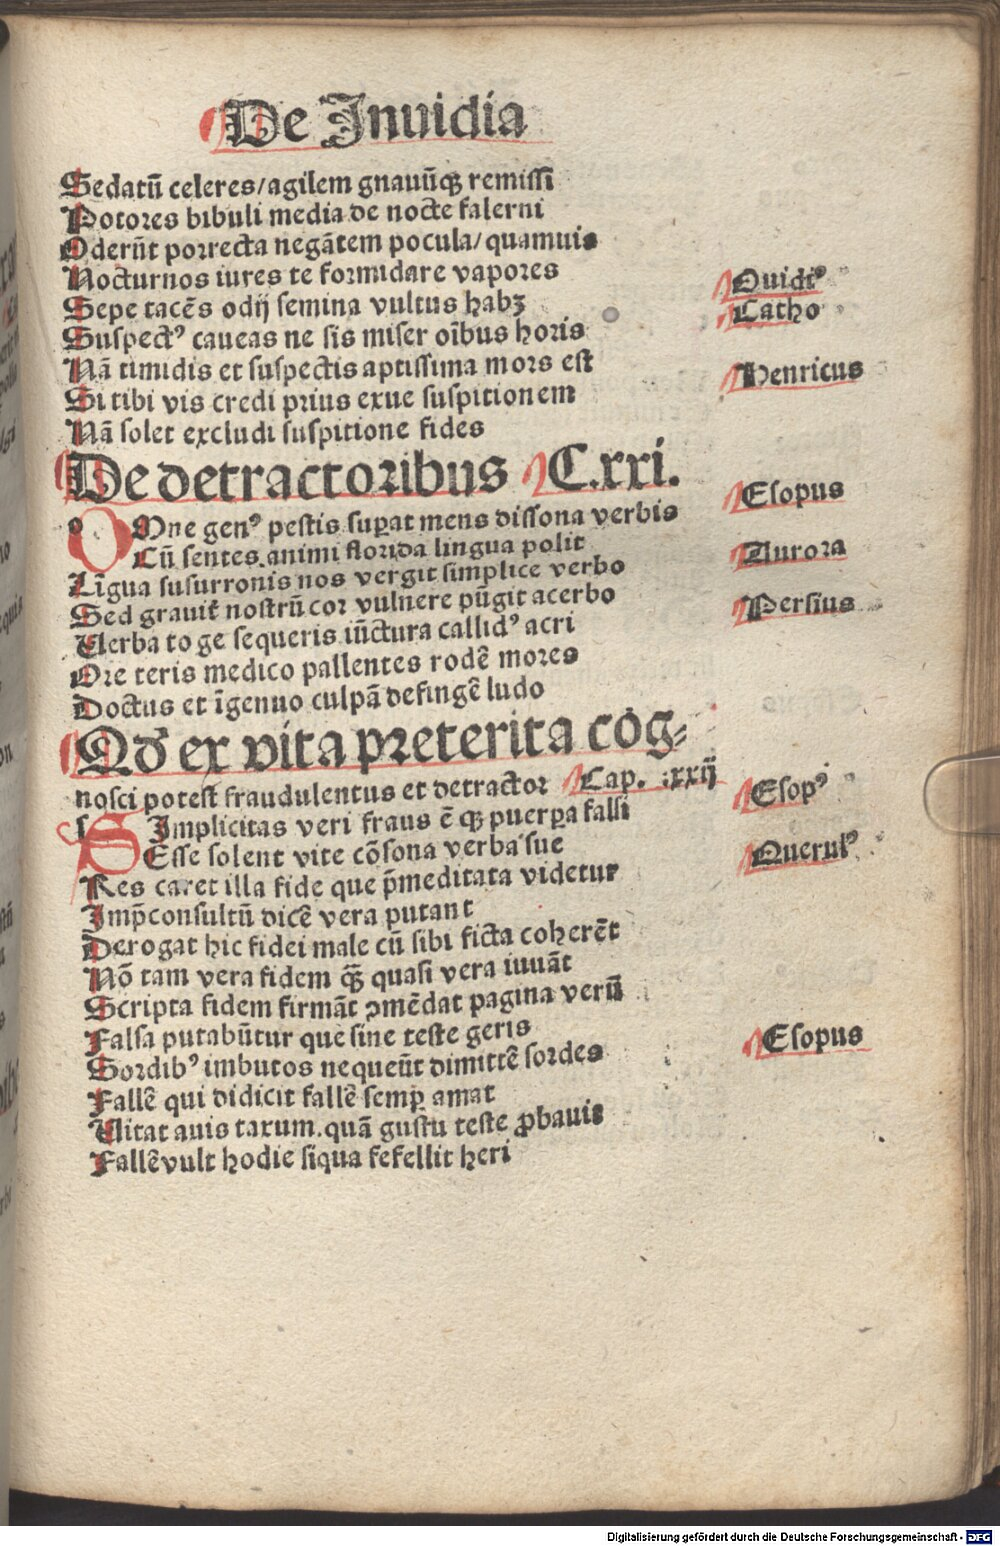 De Inuidia
Sedatū celeres/agilem gnauūqꝫ remissi
Potores bibuli media de nocte falerni
Oderūt porrecta negātem pocula/quamuis
Nocturnos iures te formidare vapores
Sepe tacēs odij semina vultus habꝫ Ouidiꝰ
Suspectꝰ caueas ne sis miser oībus horis Catho
Nā timidis et suspectis aptissima mors est
Si tibi vis credi prius exue suspitionem Henricus
Nā solet excludi suspitione fides
De detractoribus C.xxi.
o OMne genꝰ pestis suꝑat mens dissona verbis Esopus
Cū sentes animi florida lingua polit
Līgua susurronis nos vergit simplice verbo Aurora
Sed grauit̄ nostrū cor vulnere pūgit acerbo
Uerba toge sequeris iūctura callidꝰ acri Persius
Ore teris medico pallentes rodē mores
Doctus et īgenuo culpā defingē ludo
Qď ex vita preterita cog⸗
nosci potest fraudulentus et detractor Cap. xxij
s SImplicitas veri fraus ē qꝫ puerꝑa falsi Esopꝰ
Esse solent vite cōsona verba sue
Res caret illa fide que p̄meditata videtur Querulꝰ
Imp̄consultū dicē vera putant
Derogat hic fidei male cū sibi ficta coherēt
Nō tam vera fidem qꝫ̄ quasi vera iuuāt
Scripta fidem firmāt ꝯmēdat pagina verū
Falsa putabūtur que sine teste geris
Sordibꝰ imbutos nequeūt dimittē sordes Esopus
Fallē qui didicit fallē semꝑ amat
Uitat auis taxum.quā gustu teste ꝓbauis
Fallē vult hodie siqua fefellit heri
Digitalisierung gefördert durch die Deutsche Forschungsgemeinschaft - DFG